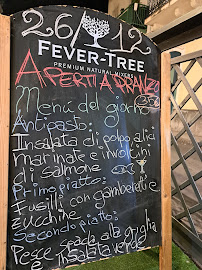 26/12
FEVER-TREE
PREMIUM NATURAL MIXERS
APERTI A PRANZO
Menù del giorno
Antipasto:
Insalata di polpo alici
marinate e involtini
di salmone
Primo piatto:
Fusilli con gamberetti e
zucchine
Secondo piatto:
Pesce spada alla griglia
Insalata verde